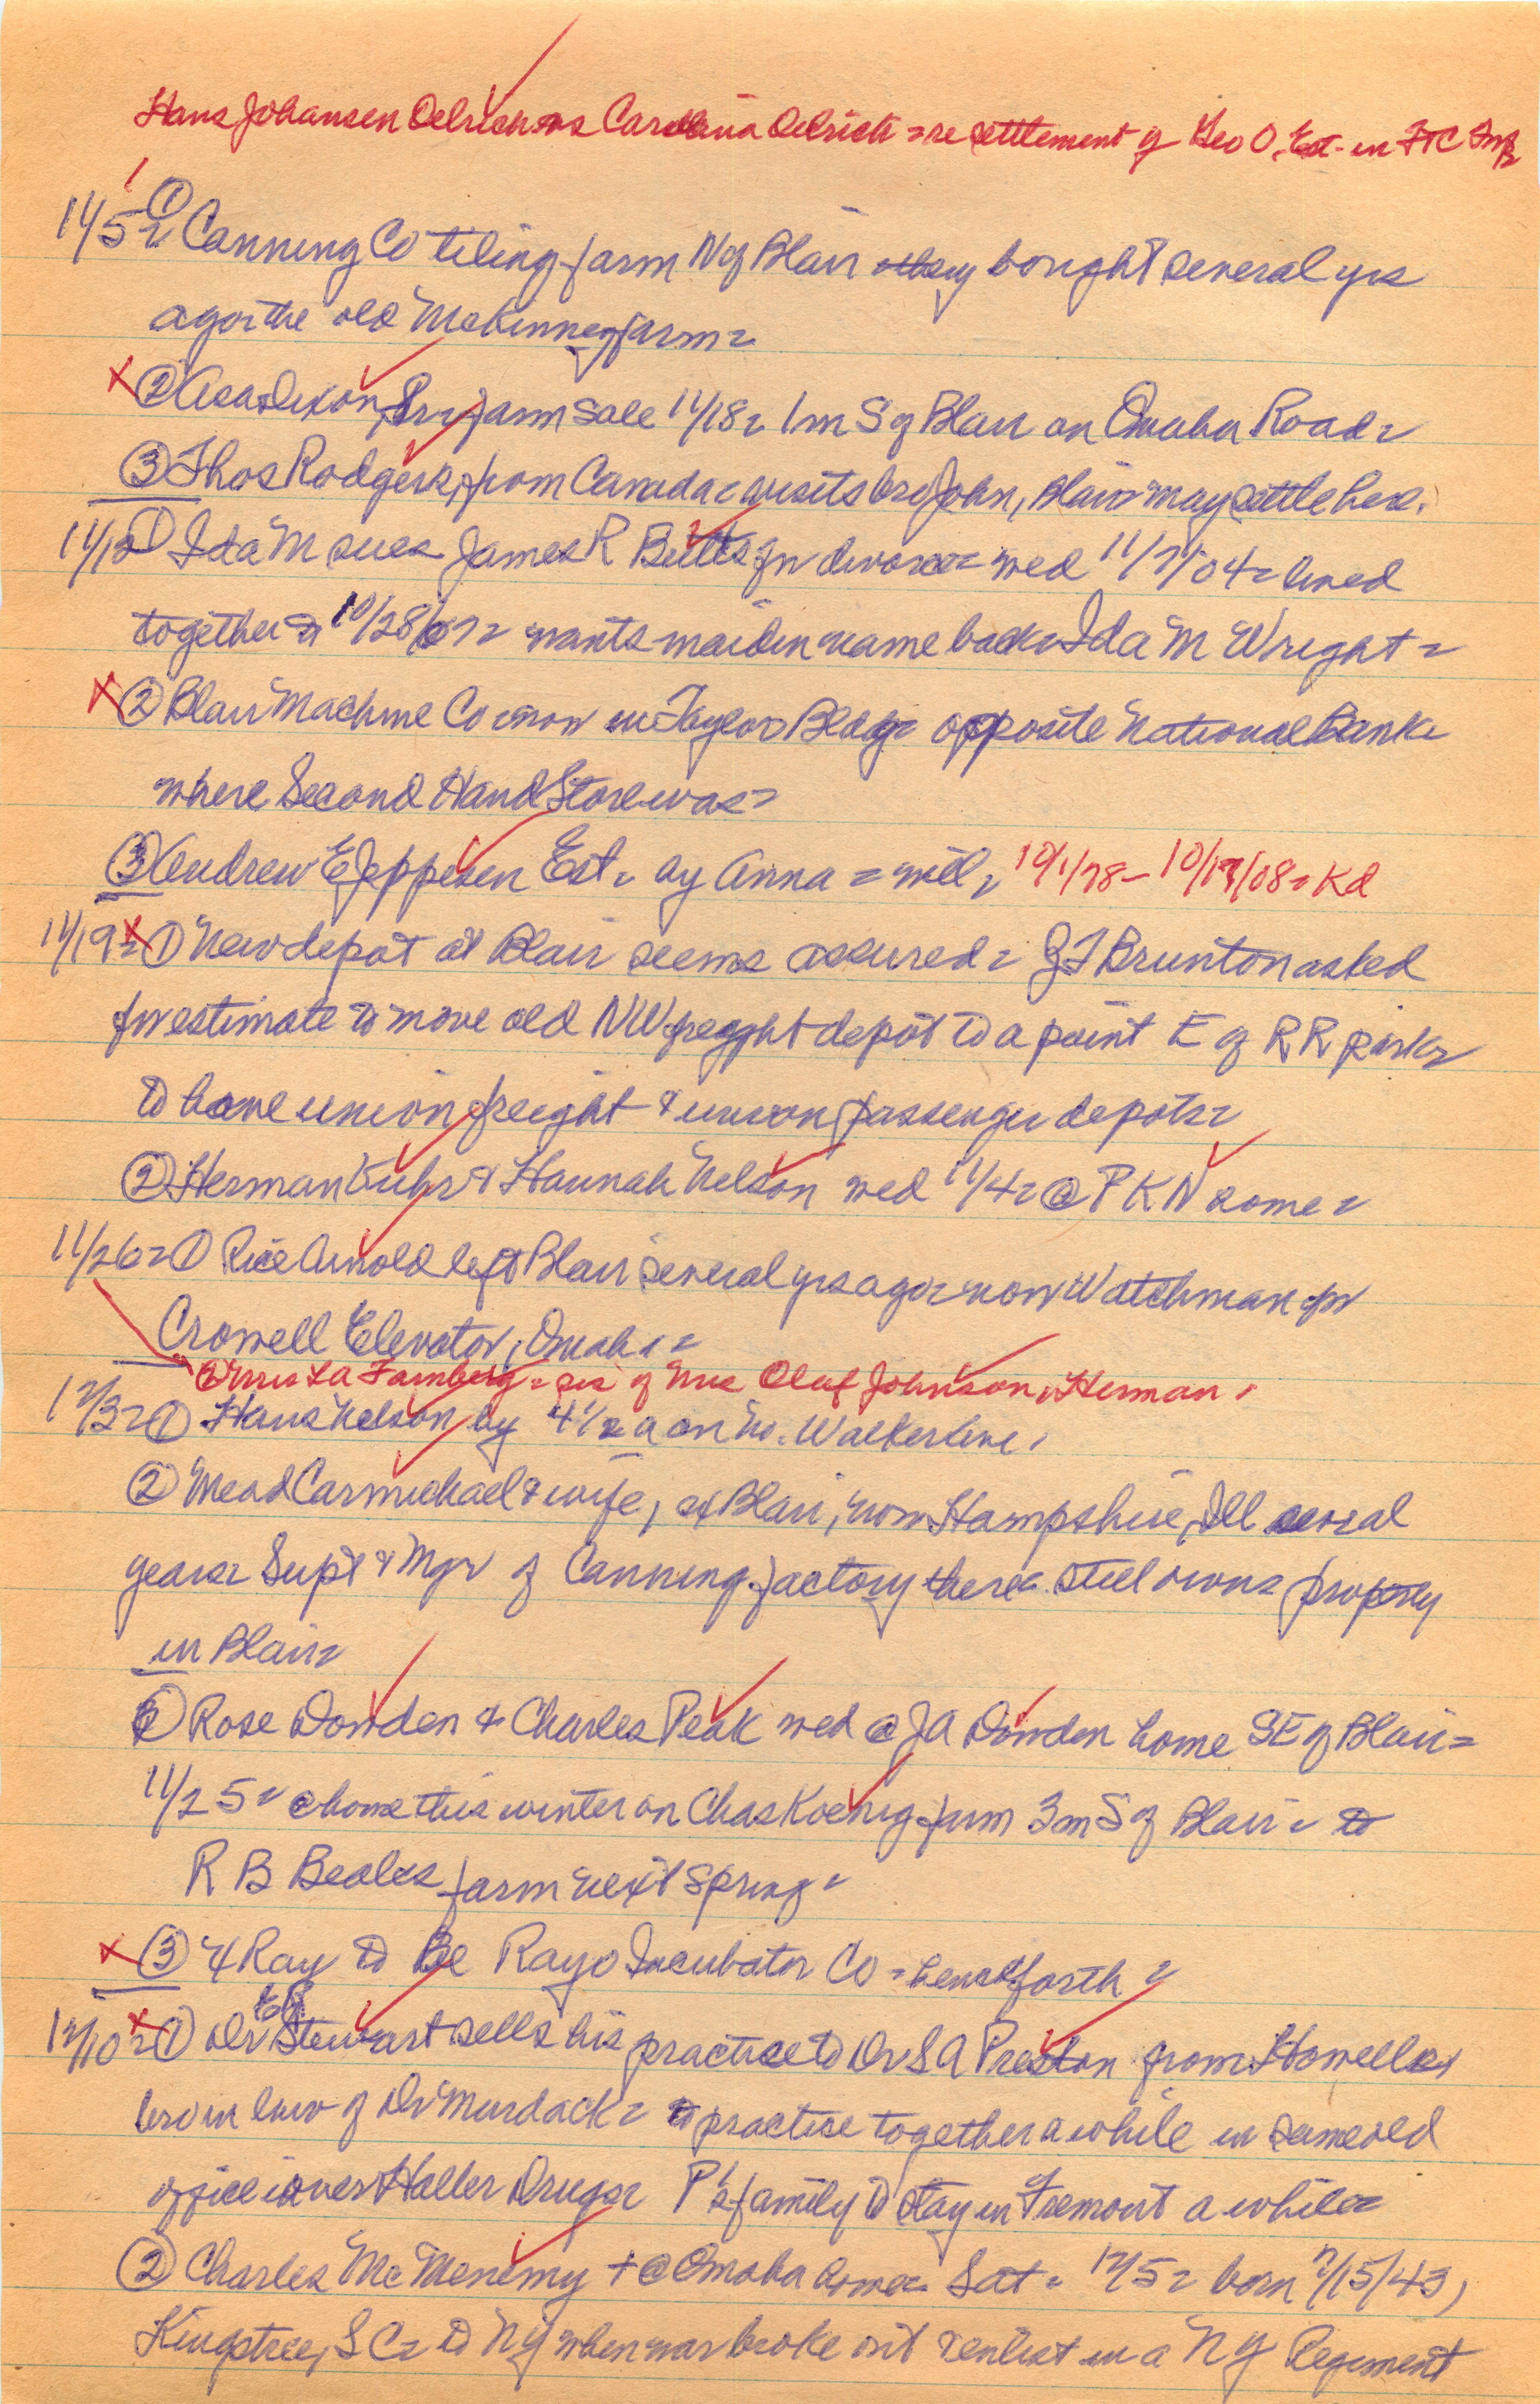 Hans Johansen Oelrich vs Carolina Oelrich = re settlement of Geo O. Est. in FTC
11/5 = ① Canning Co tiling farm N of Blair they bought several yrs
ago = the old McKinney farm =
② Asa Dixon, Sr = farm sale 11/18 = 1 m S of Blair on Omaha Road =
③ Thos Rodgers, from Canada = visits bro John, Blair = may settle here.
11/12 ① Ida M sues James R Butts for divorce = wed 11/7/04 = lived
together to 10/28/07 = wants maiden name back = Ida M Wright =
② Blair Machine Co = now in Taylor Bldg = opposite National Bank =
where Second Hand Store was =
③ Andrew E Jeppesen Est = by Anna = will = 10/1/78 - 10/19/08 = Kd
11/19 = ① New depot at Blair seems assured = J F Brunton asked
for estimate to move old NW freight depot to a point E of R R park =
to have union freight & union passenger depots =
② Herman Kuhr & Hannah Nelson wed 11/4 = @ P K N home =
11/26 = ① Rice Arnold left Blair several yrs ago = now Watchman for
Crowell Elevator, Omaha =
② Mrs L A Farnberg = sis of Mrs Olaf Johnson, Herman.
12/3 = ① Hans Nelson by 4 1/2 a on No. Walker line.
② Mead Carmichael & wife, ex Blair, now Hampshire, Ill several
years = Supt & Mgr of Canning factory there = still owns property
in Blair =
① Rose Dowden & Charles Peak wed @ J A Dowden home SE of Blair =
11/25 = @ home this winter on Chas Koenig farm 3 m S of Blair = to
R B Beales farm next spring =
③ X Ray to Be Rayo Incubator Co = henceforth =
12/10 = ① Dr E R Stewart sells his practice to Dr S A Preston from Howells,
bro in law of Dr Murdack = to practice together a while in same old
office over Haller Drugs = P's family to stay in Fremont a while =
② Charles McMenemy + @ Omaha home = Sat = 12/5 = born 7/15/43,
Kingstree, S C = to N Y when war broke out & enlist in a N Y Regiment